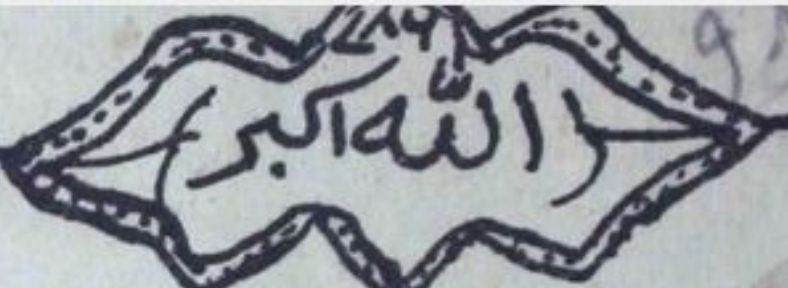 ۷۸۶
الله اكبر